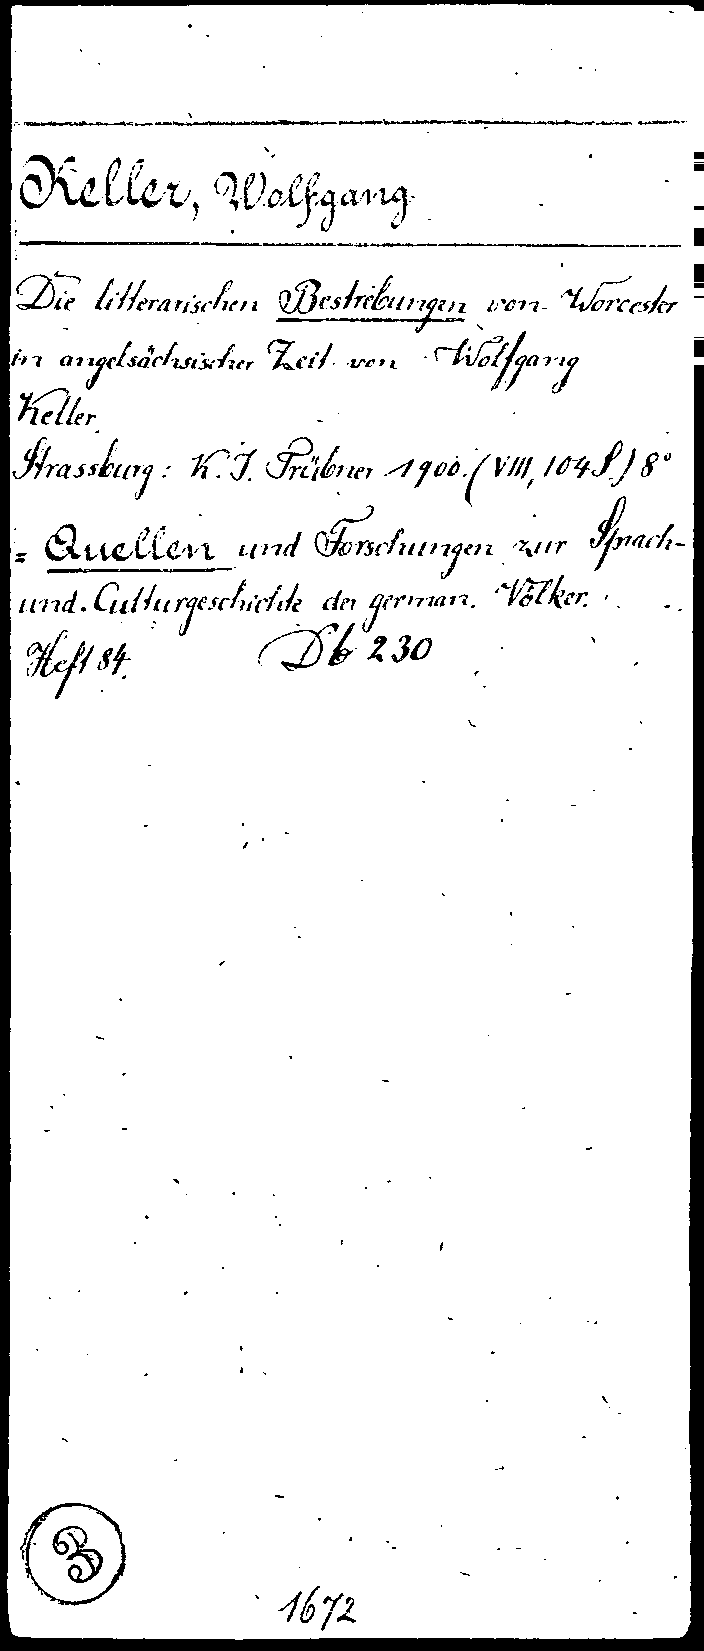 Keller, Wolfgang
Die litterarischen Bestrebungen von Worcester
in angelsächsischer Zeit von Wolfgang
Keller.
Strassburg: K. J. Trübner 1900. (VIII, 104 S.) 8°
= Quellen und Forschungen zur Sprach-
und Culturgeschichte der german. Völker.
Heft 84. Db 230
3
1672